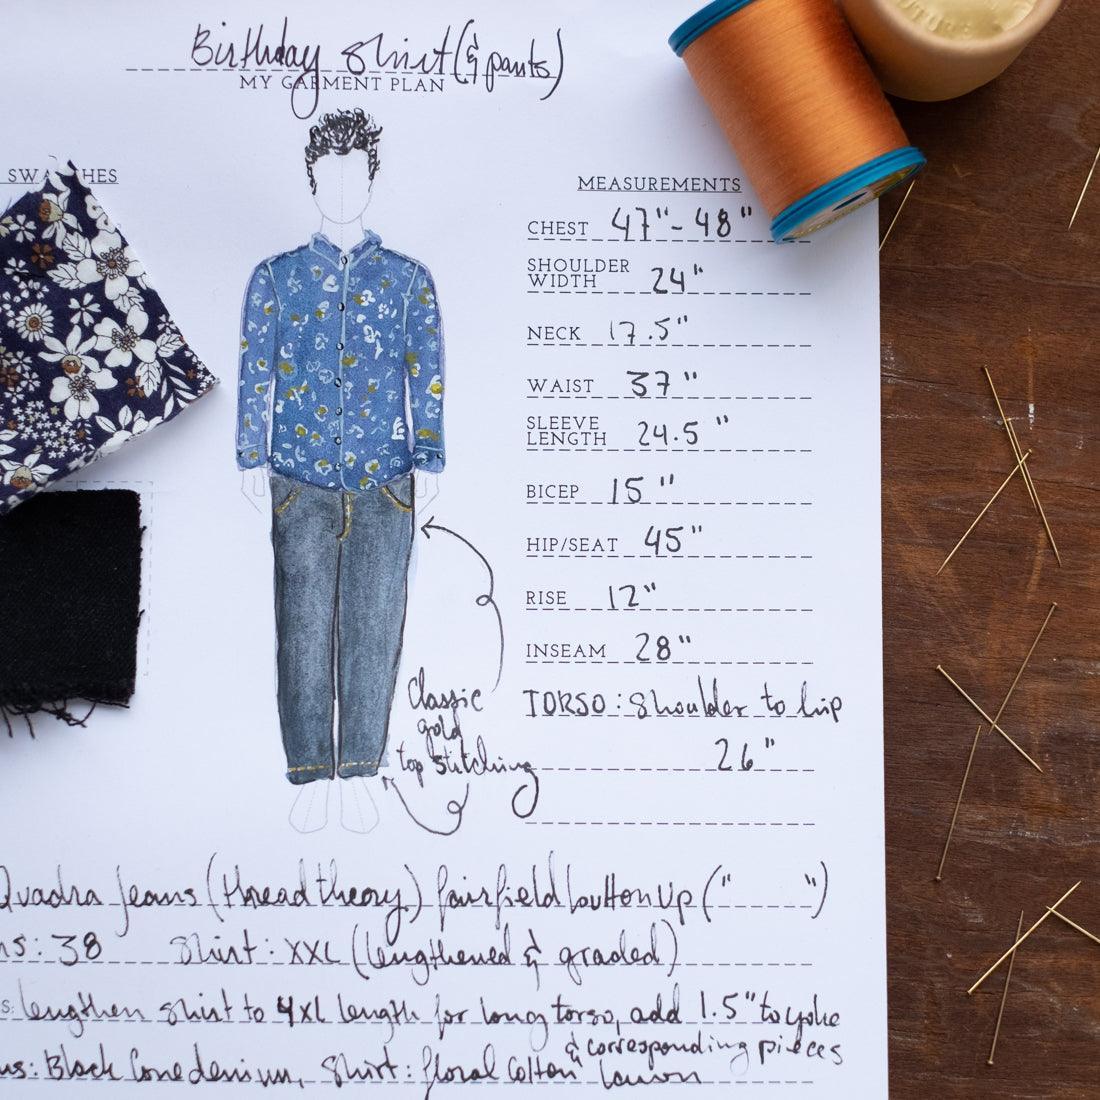 Birthday Shirt (& pants)
MY GARMENT PLAN
SWATCHES
MEASUREMENTS
CHEST 47"-48"
SHOULDER WIDTH 24"
NECK 17.5"
WAIST 37"
SLEEVE LENGTH 24.5"
BICEP 15"
HIP/SEAT 45"
RISE 12"
INSEAM 28"
TORSO: Shoulder to hip
26"
Classic
gold
top stitching
Quadra Jeans (thread theory) fairfield button up (" ")
ns: 38 Shirt: XXL (lengthened & graded)
s: lengthen shirt to 4XL length for long torso, add 1.5" to yoke
& corresponding pieces
ns: Black Cone denim, Shirt: floral Cotton lawn